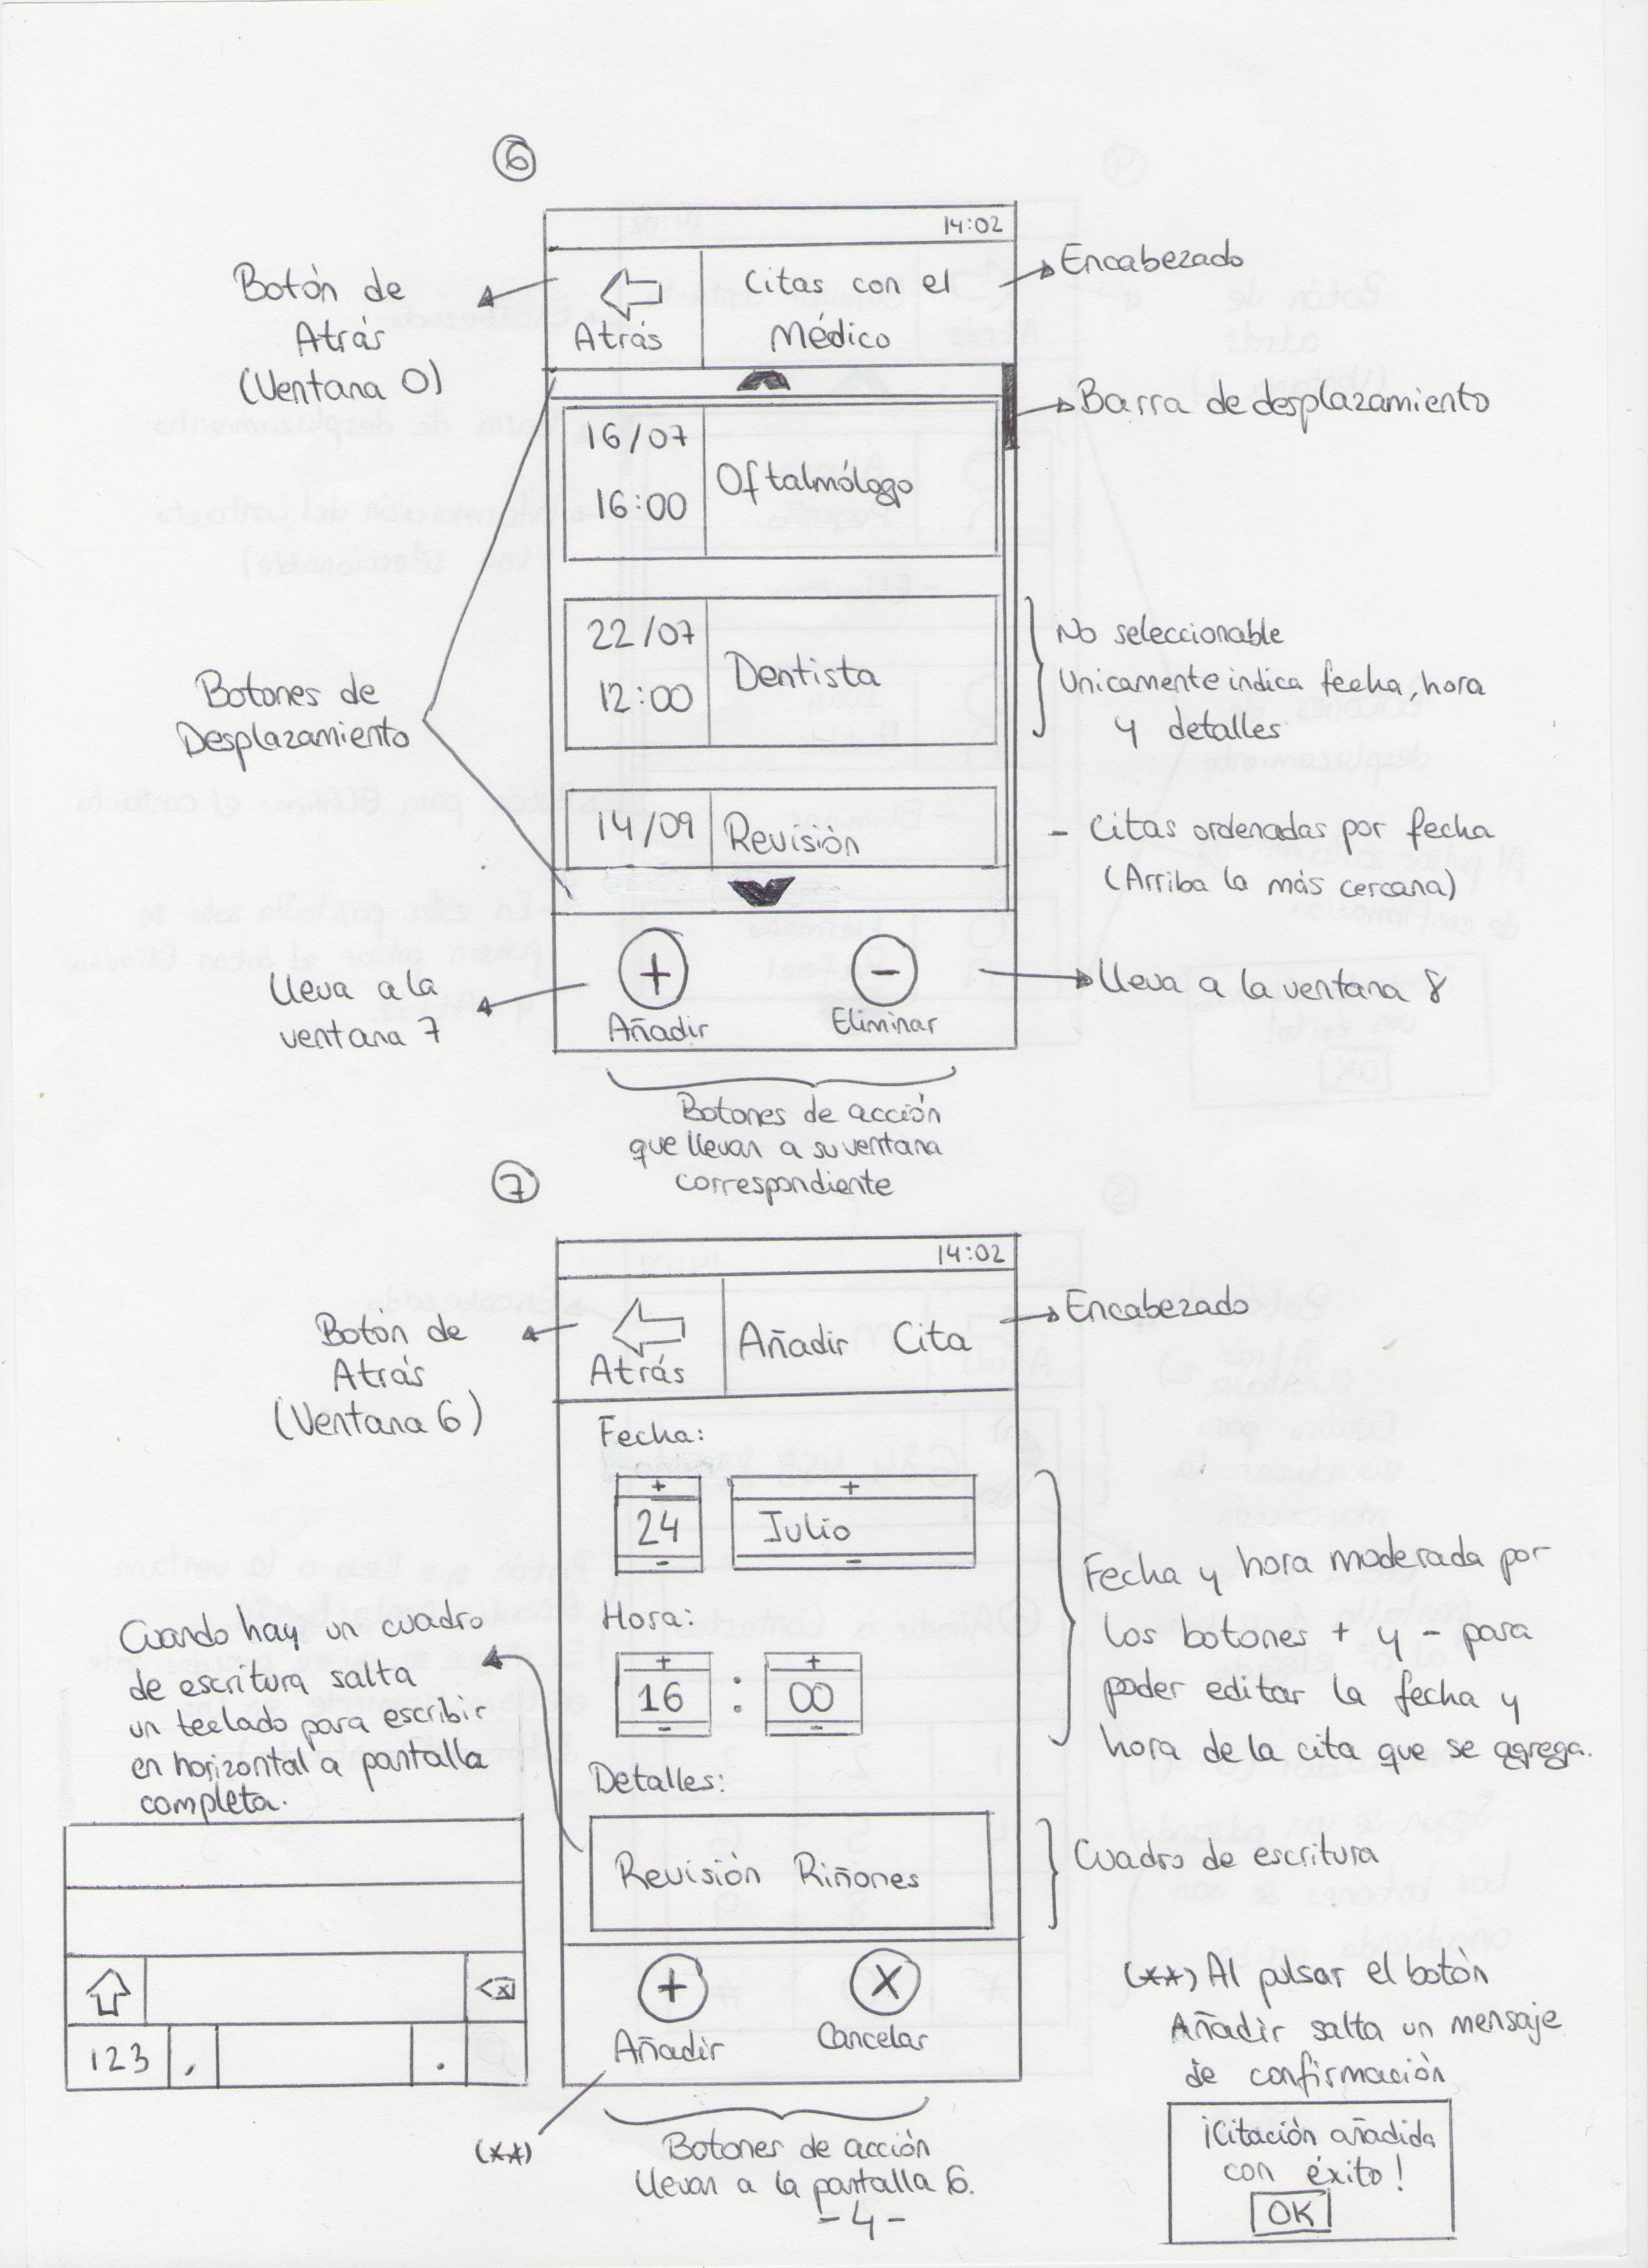 6
14:02
Botón de
Atrás
(Ventana 0)
Atrás
Citas con el
Médico
Encabezado
Barra de desplazamiento
16/07
16:00
Oftalmólogo
22/07
12:00
Dentista
No seleccionable
Unicamente indica fecha, hora
y detalles
Botones de
Desplazamiento
14/09
Revisión
- Citas ordenadas por fecha
(Arriba la más cercana)
+
Añadir
-
Eliminar
Lleva a la
ventana 7
Lleva a la ventana 8
Botones de acción
que llevan a su ventana
correspondiente
7
14:02
Botón de
Atrás
(Ventana 6)
Atrás
Añadir Cita
Encabezado
Fecha:
+ +
24 Julio
- -
Hora:
+ +
16 : 00
- -
Fecha y hora moderada por
los botones + y - para
poder editar la fecha y
hora de la cita que se agrega.
Cuando hay un cuadro
de escritura salta
un teclado para escribir
en horizontal a pantalla
completa.
Detalles:
Revisión Riñones
Cuadro de escritura
123 , .
+
Añadir
X
Cancelar
(**)
Botones de acción
llevan a la pantalla 6.
(**) Al pulsar el botón
Añadir salta un mensaje
de confirmación
¡Citación añadida
con éxito!
OK
-4-